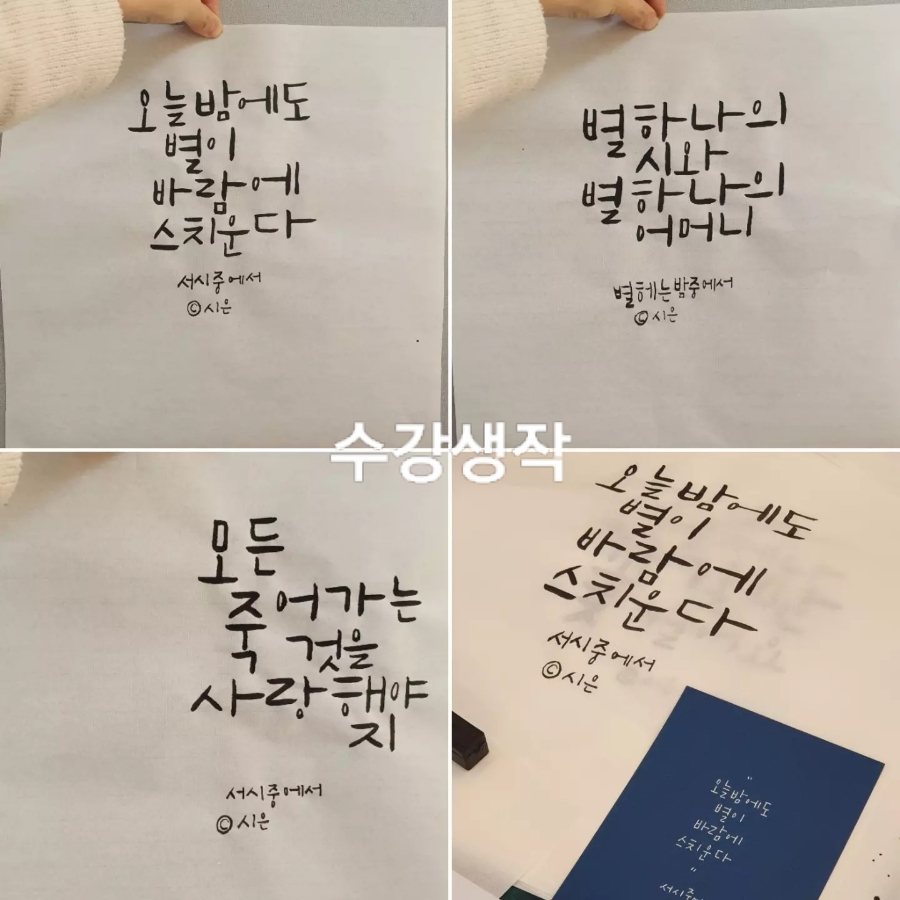 오늘밤에도
별이
바람에
스치운다
서시중에서
©시은
별하나의
시와
별하나의
어머니
별헤는밤중에서
©시은
수강생작
모든
죽어가는
것을
사랑해야
지
서시중에서
©시은
오늘밤에도
별이
바람에
스치운다
서시중에서
©시은
"
오늘밤에도
별이
바람에
스치운다
"
서시중에서